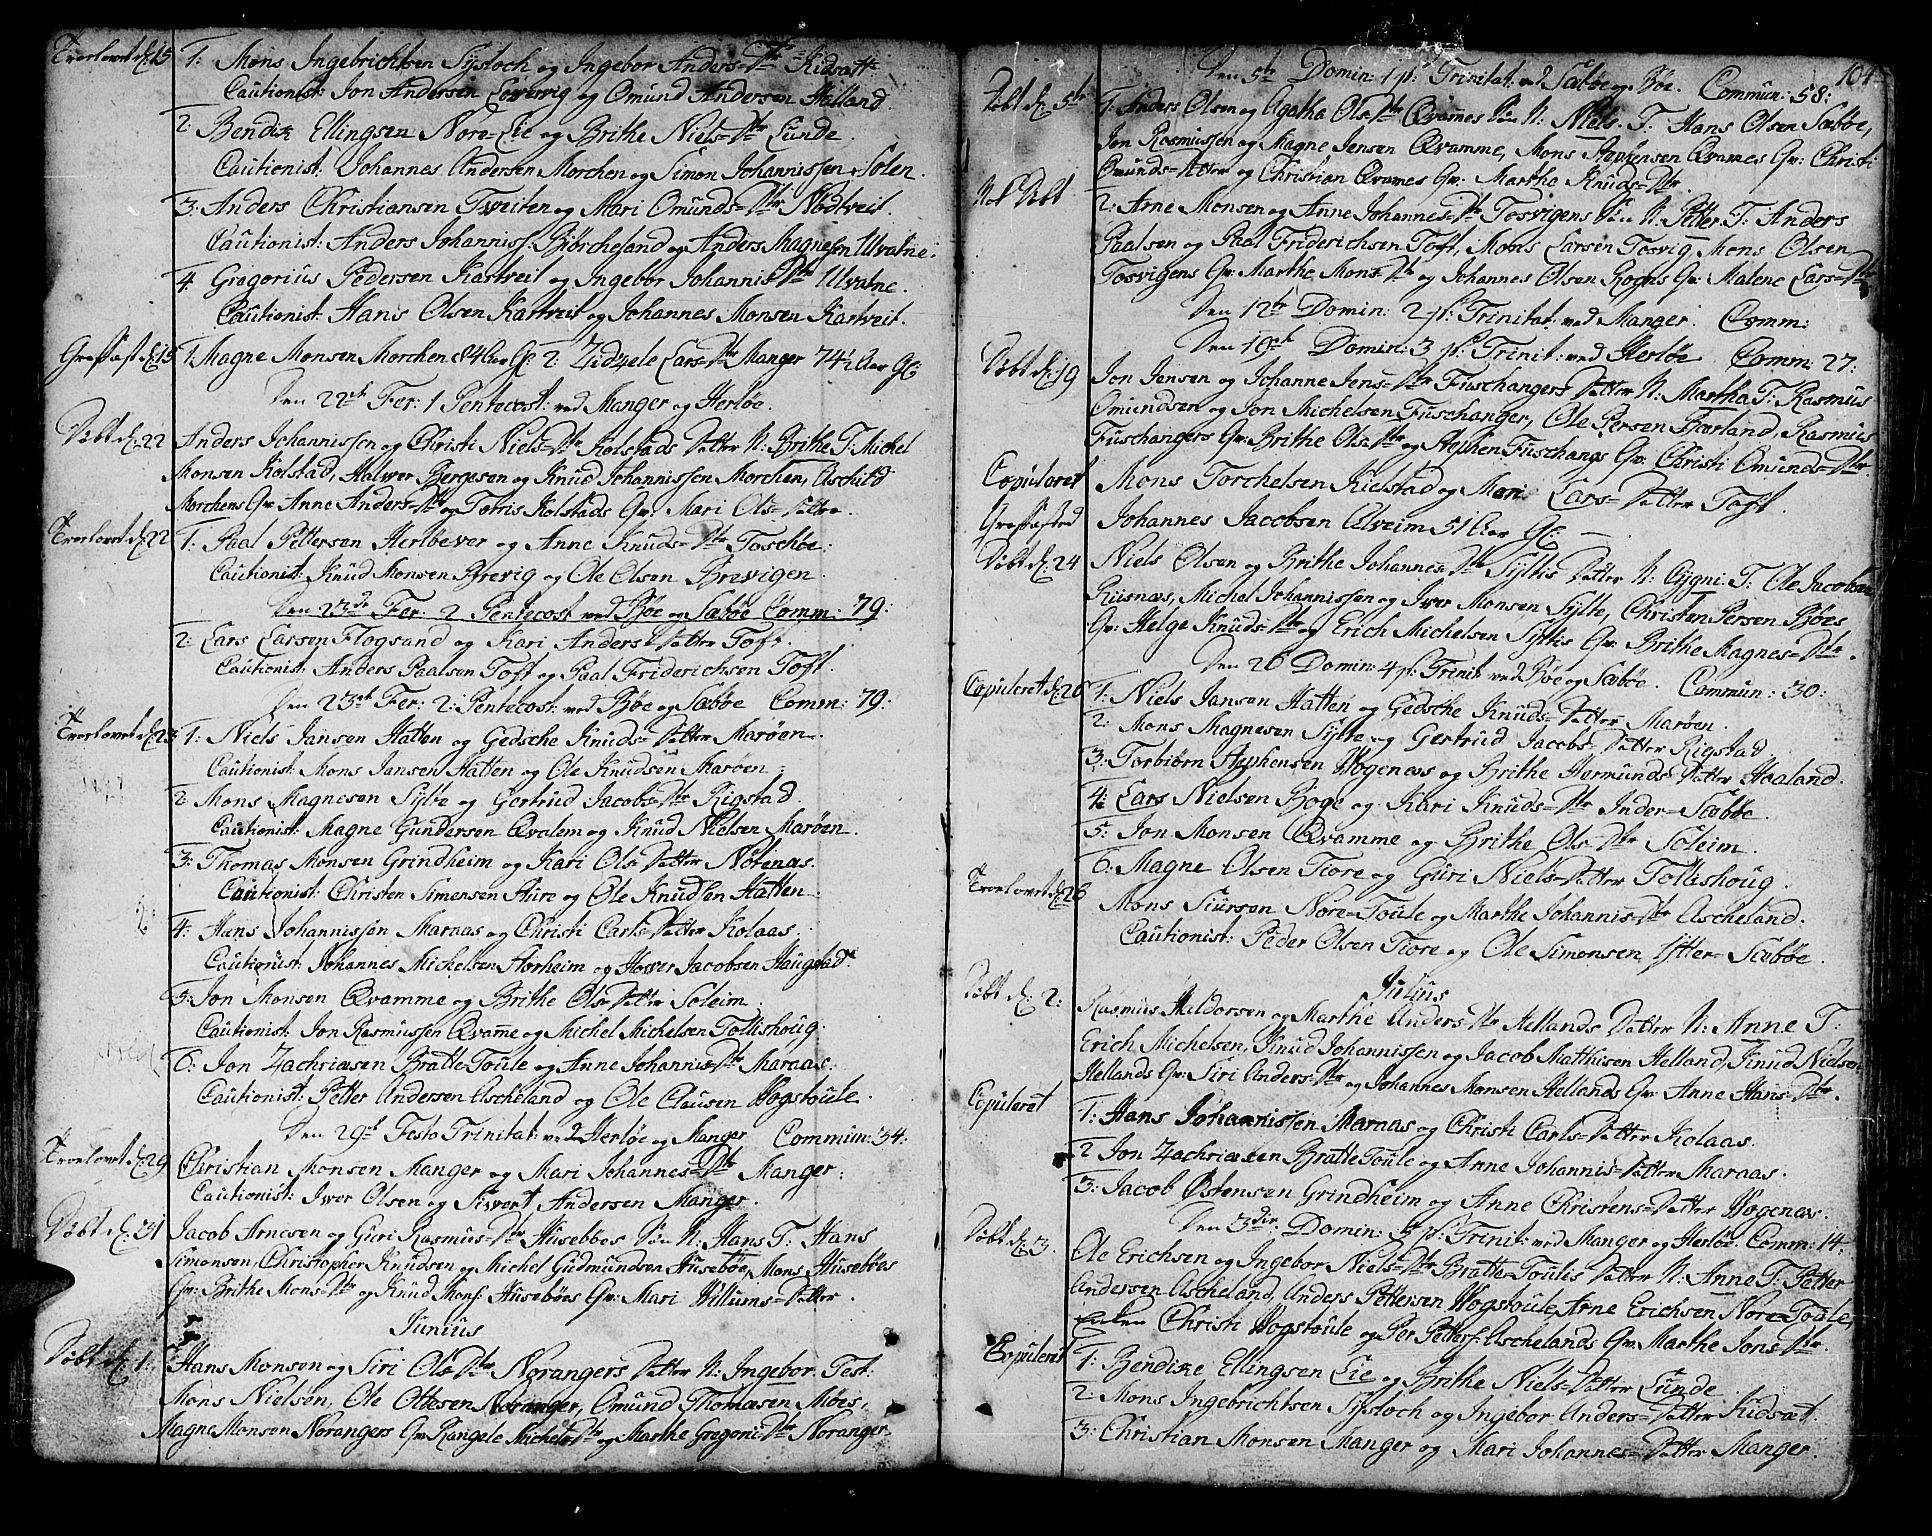 Troelovet d: 15
1: Mons Ingebrichtsen Sysloch og Ingebor Anders-Dtr Kidsatt
Cautionist: Jon Andersen og Omund Andersen Halland.
2: Bendix Ellingsen Nore-Lie og Brithe Niels-Dtr Lunde.
Cautionist: Johannes Andersen Morchen og Simon Johannissen Solen.
3: Anders Christiansen Tveiten og Mari Omunds-Dtr Nodtveit.
Cautionist: Anders Johanniss: Biörcheland og Anders Magnesen Ulvatne.
4 Gregorius Pedersen Kartveit og Ingebor Johannis Dtr Ulvatne.
Cautionist: Hans Olsen Kartveit og Johannes Monsen Kartveit.
Græsfæst d: 15
1 Magne Monsen Morchen 84 Aar Gl: 2: Zidzele Lars-Dtr Manger 74½ Aar Gl:
Den 22de Fer: 1 Pentecost: ved Manger og Herløe.
Döbt d: 22
Anders Johannissen og Christi Niels-Dtr Kolstads Datter N: Brithe T: Michel
Monsen Kolstad, Halvor Bergesen og Knud Johannissen Morchen, Aschild
Morchens Qv: Anne Anders-Dtr og Torris Kolstads Qv: Mari Ols-Datter.
Troelovet d: 22
1: Paal Pettersen Herløevær og Anne Knuds-Dtr Toschöe:
Cautionist: Knud Monsen Brevig og Ole Olsen Brevigen.
Den 23de Fer: 2 Pentecost ved Böe og Sæbøe Comm: 79:
2: Lars Larsen Flogsand og Kari Anders Datter Toft.
Cautionist: Anders Paalsen Toft og Paal Friderichsen Toft.
Den 23de Fer: 2: Pentecost: ved Böe og Sæbøe Comm: 79:
Troelovet d: 23
1: Niels Jansen Hatten og Gedsche Knuds-Datter Maröen.
Cautionist: Mons Jansen Hatten og Ole Knudsen Maröen:
2: Mons Magnesen Sylte og Gertrud Jacobs-Dtr Rigstad.
Cautionist: Magne Gundersen Qvalem og Knud Nielsen Maröen.
3: Thomas Monsen Grindheim og Kari Ols-Datter Nötenæs.
Cautionist: Christen Simensen Aure og Ole Knudsen Hatten.
4: Hans Johannissen Maraas og Christi Carls-Datter Kolaas.
Cautionist: Johannes Michelsen Aorheim og Hover Jacobsen Haugstad.
5: Jon Monsen Qvamme og Brithe Ols-Datter Soleim.
Cautionist: Jon Rasmussen Qvame og Michel Michelsen Tollishoug:
6: Jon Zachriæsen Bratte-Toule og Anne Johannis-Dtr Maraas.
Cautionist: Petter Andersen Ascheland og Ole Clausen Hogstoule.
Den 29de Festo Trinitat: ved Herløe og Manger Commun: 34:
Troelovet d: 29
Christian Monsen Manger og Mari Johannes-Dtr Manger:
Cautionist: Iver Olsen og Sivert Andersen Manger.
Döbt d: 31
Jacob Arnesen og Guri Rasmus-Dtr Husebøes Sön N: Hans T: Hans
Simonsen, Christopher Knudsen og Michel Gudmundsen Husebøe, Mons Husebøes
Qv: Brithe Mons-Dtr og Knud Mons: Husebøes Qv: Mari Villums-Datter.
Junius
Döbt d: 1:
Hans Monsen og Siri Ols-Dtr Norangers Datter N: Ingebor Test:
Mons Nielsen, Ole Ottesen Noranger, Omund Thomæsen Moes,
Magne Monsen Norangers Qv: Rangele Michels-Dtr og Marthe Gregori-Dtr Noranger.
104
Den 5te Domin: 1 p: Trinitat: ved Sæbøe og Böe. Commun: 58:
Döbt d: 5te
1: Anders Olsen og Agatha Ols-Dtr Qvames Sön N: Niels. T: Hans Olsen Sæbøe,
Jon Rasmussen og Magne Jensen Qvamme, Mons Stephensen Qvames Qv: Christi
Omunds-Datter og Christian Qvames Qv: Marthe Knuds-Dtr.
2: Arne Monsen og Anne Johannes-Dtr Tosvigens Sön N: Petter T: Anders
Paalsen og Paal Friderichsen Toft, Mons Larsen Tosvig, Mons Olsen
Tosvigens Qv: Marthe Mons-Dtr og Johannes Olsen Rogns Qv: Malene Lars-Dtr
Den 12te Domin: 2 p: Trinitat: ved Manger. Comm:
Den 19de Domin: 3 p: Trinit: ved Herløe Comm: 27:
Döbt d: 19
Jon Jensen og Johanne Jens-Dtr Fuschangers Datter N: Martha T: Rasmus
Omundsen og Jon Michelsen Fuschanger, Ole Persen Færland, Rasmus
Fuschangers Qv: Brithe Ols-Dtr og Stephen Fuschangs Qv: Christi Omunds-Dtr
Copuleret
Mons Torchelsen Kielstad og Mari Lars-Datter Toft.
Græsfæsted
Johannes Jacobsen Alveim 51 Aar Gl:
Döbt d: 24
Niels Olsen og Brithe Johannes-Dtr Syltis Datter N: Cygni: T: Ole Jacobsen
Riisnæs, Michel Johannissen og Iver Monsen Sylte, Christen Persen Böes
Qv: Helge Knuds-Dtr og Erich Michelsen Syltis Qv: Brithe Magnes-Dtr.
Den 26 Domin: 4 p: Trinit: ved Böe og Sæbøe. Commun: 30:
Copuleret d: 26
1: Niels Jansen Hatten og Gedsche Knuds-Datter Maröen.
2: Mons Magnesen Sylte og Gertrud Jacobs-Datter Rigstad
3: Torbiörn Stephensen Hogenæs og Brithe Hermunds-Datter Haaland.
4: Lars Nielsen Boge og Kari Knuds-Dtr Inder-Sæbøe.
5: Jon Monsen Qvamme og Brithe Ols-Dtr Soleim.
6: Magne Olsen Tiore og Guri Niels-Datter Tollishoug.
Troelovet d: 26
Mons Siursen Nore-Toule og Marthe Johannis-Dtr Ascheland.
Cautionist: Peder Olsen Tiore og Ole Simonsen Ytter-Sæbøe.
Julius
Döbt d: 2:
Rasmus Haldorsen og Marthe Anders-Dtr Hellands Datter N: Anne T:
Erich Michelsen, Knud Johannissen og Jacob Matthiisen Helland, Knud Nielsen
Hellands Qv: Siri Anders-Dtr og Johannes Monsen Hellands Qv: Anne Hans-Dtr.
Copuleret
1: Hans Johannissen Maraas og Christi Carls-Datter Kolaas.
2 Jon Zachriæsen Bratte Toule og Anne Johannis-Datter Maraas.
3: Jacob Östensen Grindheim og Anne Christens-Datter Hogenæs.
Den 3die Domin: 5 p: Trinit: ved Manger og Herløe. Comm: 14:
Döbt d: 3.
Ole Erichsen og Ingebor Niels-Dtr Bratte-Toulis Datter N: Anne T: Petter
Andersen Ascheland, Anders Pettersen Hogstoule, Arne Erichsen Nore-Toule,
Enken Christi Hogstoule og Per Petters: Aschelands Qv: Marthe Jons-Dtr.
Copuleret
1: Bendixe Ellingsen Lie og Brithe Niels-Datter Lunde.
2: Mons Ingebrichtsen Sysloch og Ingebor Anders-Datter Kidsæt
3: Christian Monsen Manger og Mari Johannes-Datter Manger.